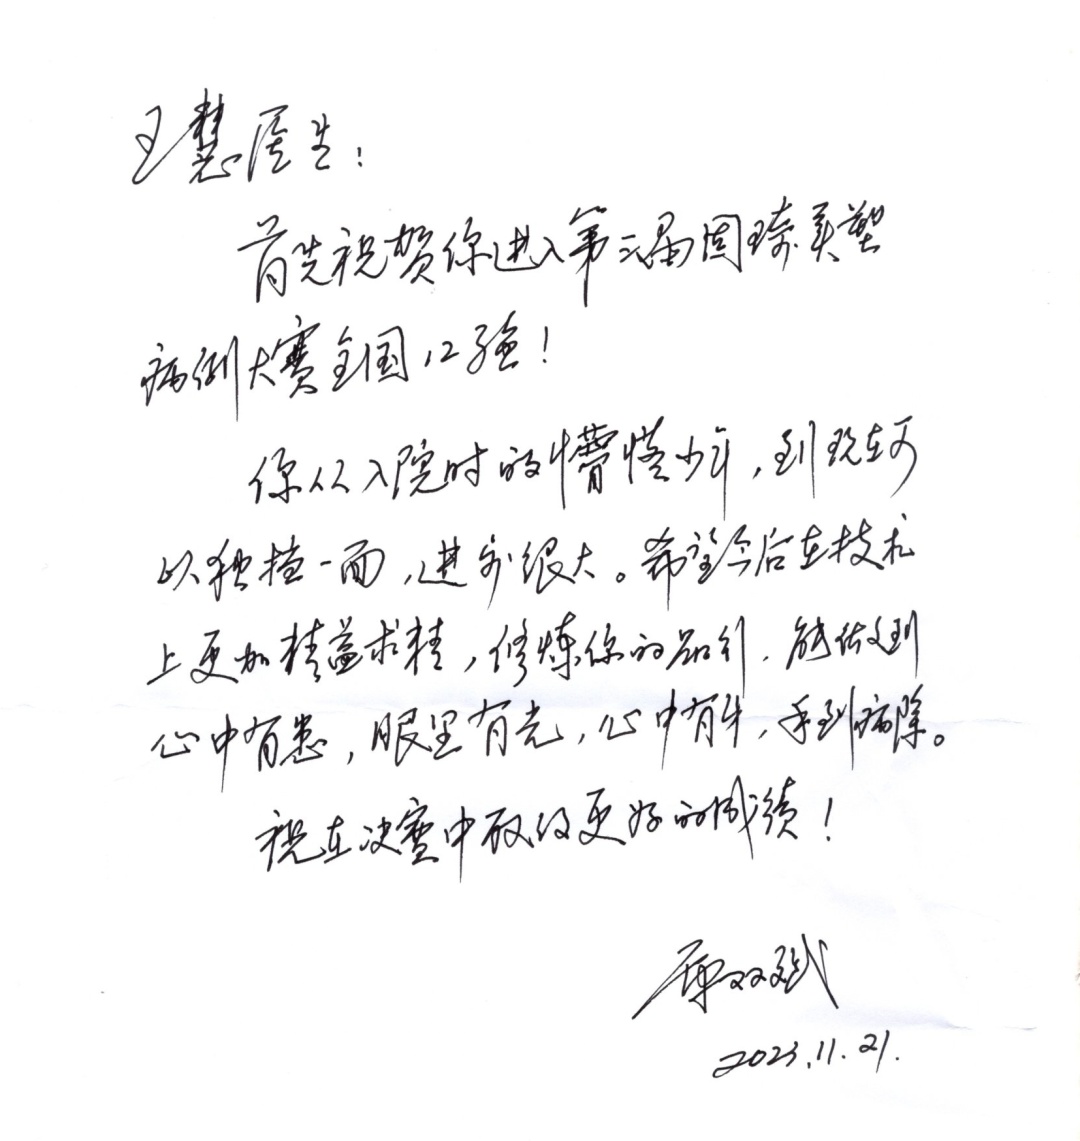 王慧医生：
首先祝贺你进入第二届固琦美塑
病例大赛全国12强！
你从入院时的懵懂少年，到现在可
以独挡一面，进步很大。希望今后在技术
上更加精益求精，修炼你的品行，能做到
心中有患，眼里有光，心中有爿，手到病除。
祝在决赛中取得更好的成绩！
双斌
2023.11.21.